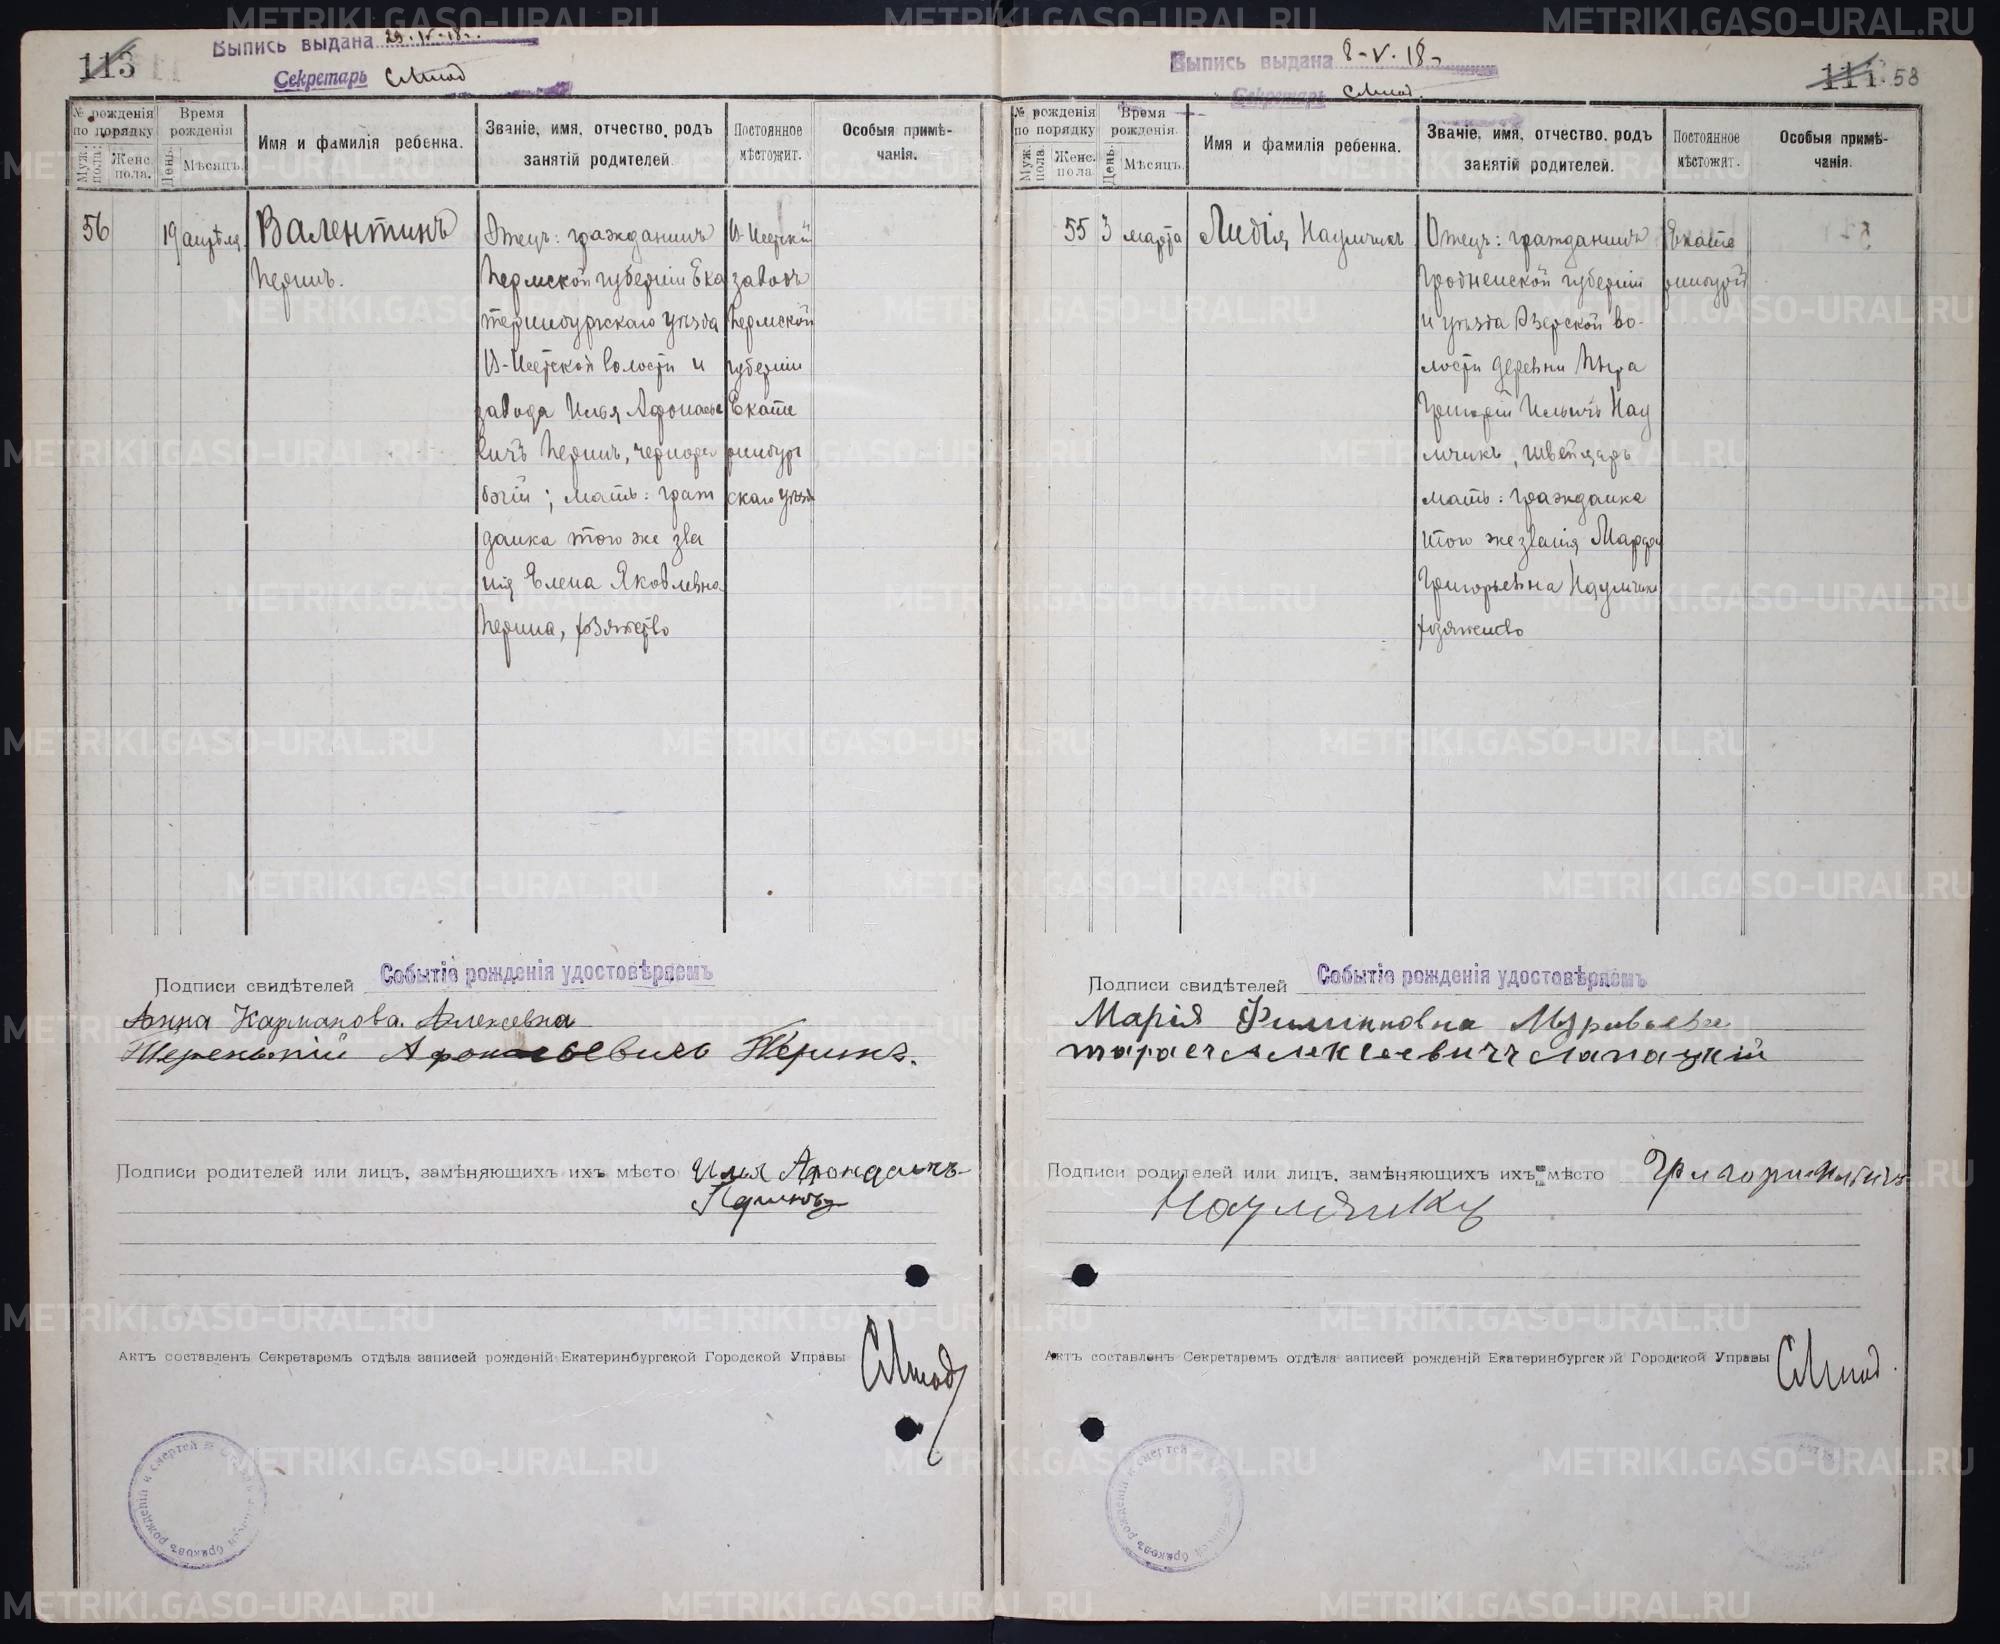 113
Выпись выдана 29.IV.18.
Секретарь
№ рожденія по порядку
Муж. пола.
Женс. пола.
Время рожденія
День.
Мѣсяцъ.
Имя и фамилія ребенка.
Званіе, имя, отчество, родъ занятій родителей.
Постоянное мѣстожит.
Особыя примѣ-
чанія.
56
19 апрѣля
Валентинъ
Перинъ.
Отецъ: гражданинъ
Пермской губерніи Ека
теринбургскаго уѣзда
В-Исетской волости и
завода Илья Афонасье
вичъ Перинъ, чернора
бочій; мать: граж
данка того же зва
нія Елена Яковлевна
Перина, хозяйство
В-Исетскій
заводъ
Пермской
губерніи
Екате
ринбург
скаго уѣзда
Подписи свидѣтелей Событіе рожденія удостовѣряемъ
Анна Карманова. Алексевна
Афонасьевичь Перинъ.
Подписи родителей или лицъ, замѣняющихъ ихъ мѣсто Илья
Актъ составленъ Секретаремъ отдѣла записей рожденій Екатеринбургской Городской Управы
111 58
Выпись выдана 8-V.18
Секретарь
№ рожденія по порядку
Муж. пола.
Женс. пола
Время рожденія.
День.
Мѣсяцъ.
Имя и фамилія ребенка.
Званіе, имя, отчество, родъ занятій родителей.
Постоянное мѣстожит.
Особыя примѣ-
чанія.
55
3 марта
Лидія Наумчикъ
Отецъ: гражданинъ
Гродненской губерніи
и уѣзда Озерской во-
лости деревни
Григорій Ильичъ Нау
мчикъ, швейцаръ
мать: гражданка
того же званія Марфа
Григорьевна Наумчикъ
хозяйство
Екате
ринбургъ
Подписи свидѣтелей Событіе рожденія удостовѣряемъ
Марія Филипповна Муравьева
тарасъ Алексеевичъ лапацкій
Подписи родителей или лицъ, замѣняющихъ ихъ мѣсто Григори Ильичъ
Наумчикъ
Актъ составленъ Секретаремъ отдѣла записей рожденій Екатеринбургской Городской Управы
METRIKI.GASO-URAL.RU